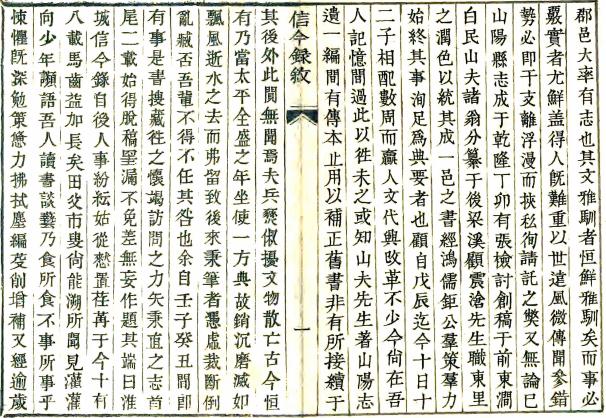 郡邑大率有志也其文雅馴者恒鮮雅馴矣而事必
覈實者尤鮮盖得人既難重以世遠風微傳聞參錯
勢必即于支離浮漫而挾私徇請託之獘又無論已
山陽縣志成于乾隆丁卯有張檢討創稿于前東澗
白民山夫諸翁分纂于後梁溪顧震滄先生職東里
之潤色以統其成一邑之書經鴻儒鉅公羣策羣力
始終其事洵足爲典要者也顧自戊辰迄今十日十
二子相配數周而贏人文代興改革不少今尙在吾
人記憶間過此以徃未之或知山夫先生著山陽志
遺一編間有傳本止用以補正舊書非有所接續于
信今録敘
一
其後外此闃無聞焉夫兵燹俶擾文物散亡古今恒
有乃當太平全盛之年坐使一方典故銷沉磨滅如
飄風逝水之去而弗留致後來秉筆者憑虛裁斷倒
亂臧否吾輩不得不任其咎也余自壬子癸丑間即
有事是書搜藏徃之懷竭訪問之力矢秉直之志首
尾二載始得脫稿罣漏不免差無妄作題其端曰淮
城信今錄自後人事紛紜姑從置荏苒于今十有
八載馬齒益加長矣田父市叟尙能溯所聞見灌灌
向少年顛語吾人讀書談藝乃食所食不事所事乎
悚懼旣深勉策憊力拂拭塵編芟削增補又經逾歲